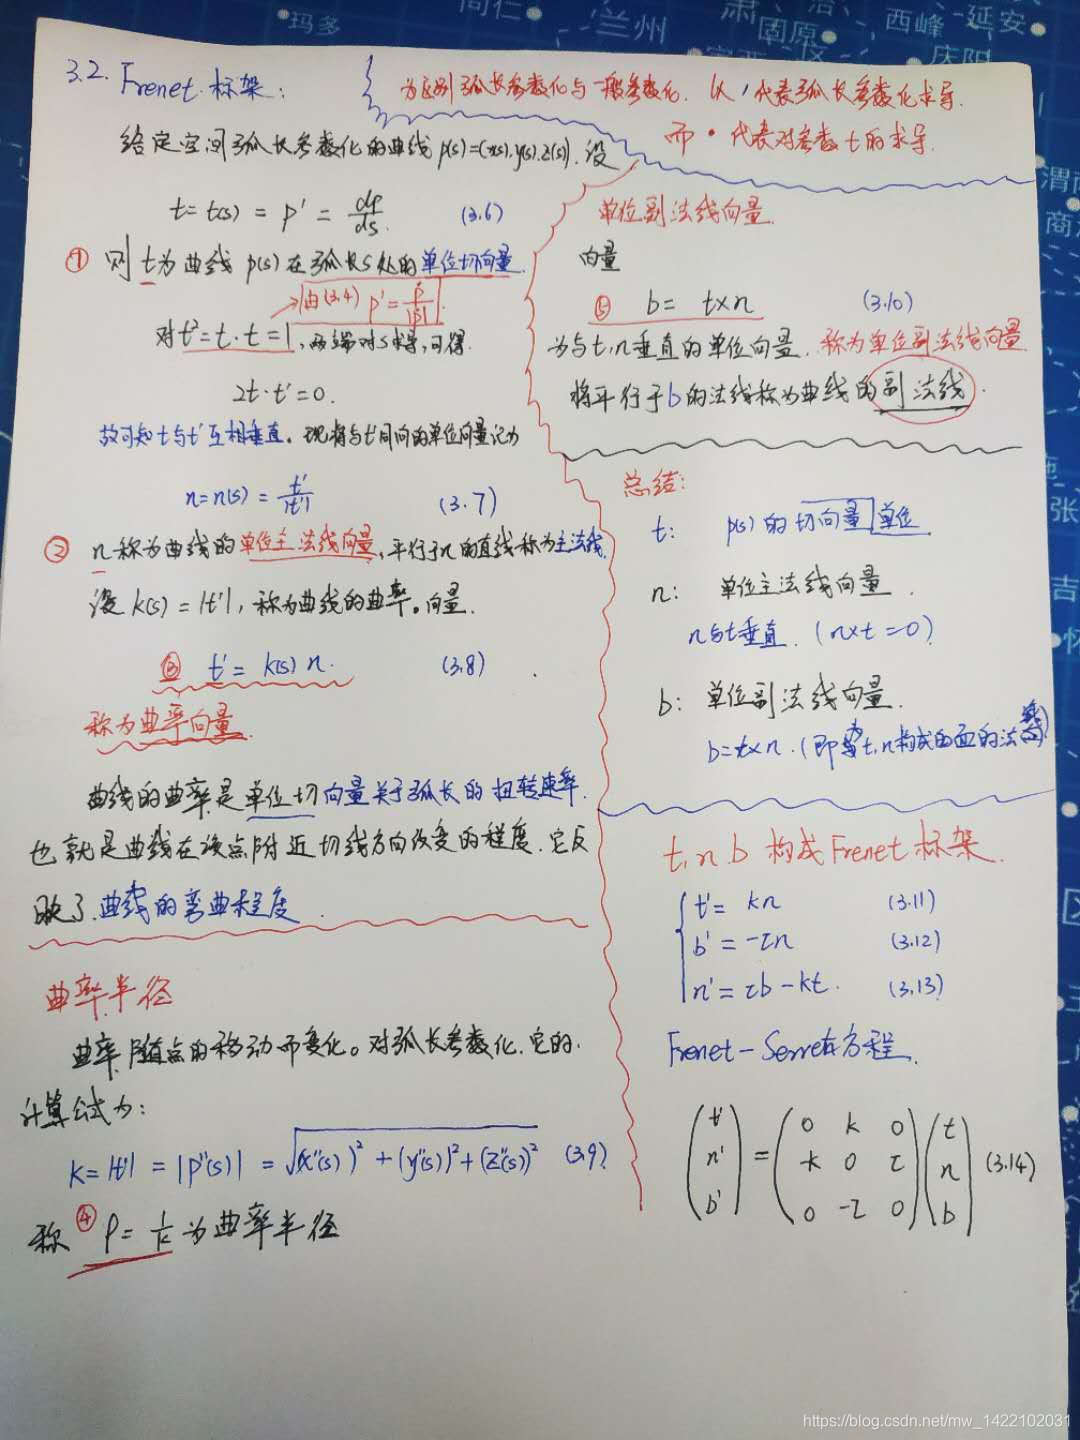 3.2. Frenet 标架:
为区别弧长参数化与一般参数化. 以 ' 代表弧长参数化求导.
而 • 代表对参数 t 的求导.
给定空间弧长参数化的曲线 p(s)=(x(s).y(s).z(s)). 设
t = t(s) = p' = dp/ds. (3.6)
① 则 t 为曲线 p(s) 在弧长 s 处的单位切向量.
由(3.4) p' = ṗ/|ṗ|
对 t²=t·t=1, 两端对 s 求导, 可得.
2t·t'=0.
故可知 t 与 t' 互相垂直. 现将与 t' 同向的单位向量记为
n=n(s) = t'/|t'| (3.7)
② n 称为曲线的单位主法线向量, 平行于 n 的直线称为主法线.
设 k(s) = |t'|, 称为曲线的曲率。向量.
③ t' = k(s) n. (3.8)
称为曲率向量.
曲线的曲率是单位切向量关于弧长的扭转速率.
也就是曲线在该点附近切线方向改变的程度. 它反
映了曲线的弯曲程度.
曲率半径
曲率随点的移动而变化。对弧长参数化, 它的.
计算公式为:
k=|t'| = |p''(s)| = √(x''(s))²+(y''(s))²+(z''(s))² (3.9)
称 ④ ρ = 1/k 为曲率半径
单位副法线向量.
向量
⑤ b = t×n (3.10)
为与 t,n 垂直的单位向量. 称为单位副法线向量.
将平行于 b 的法线称为曲线的副法线.
总结:
t: p(s) 的切向量 单位
n: 单位主法线向量.
n 与 t 垂直. (n×t=0)
b: 单位副法线向量.
b=t×n. (即 t,n 构成的面的法线)
t.n.b 构成 Frenet 标架.
t' = kn (3.11)
b' = -τn (3.12)
n' = τb-kt. (3.13)
Frenet-Serret方程.
(t' n' b') = (0 k 0 -k 0 τ 0 -τ 0)(t n b) (3.14)
玛多
同仁
兰州
固原
西峰
延安
庆阳
https://blog.csdn.net/mw_1422102031